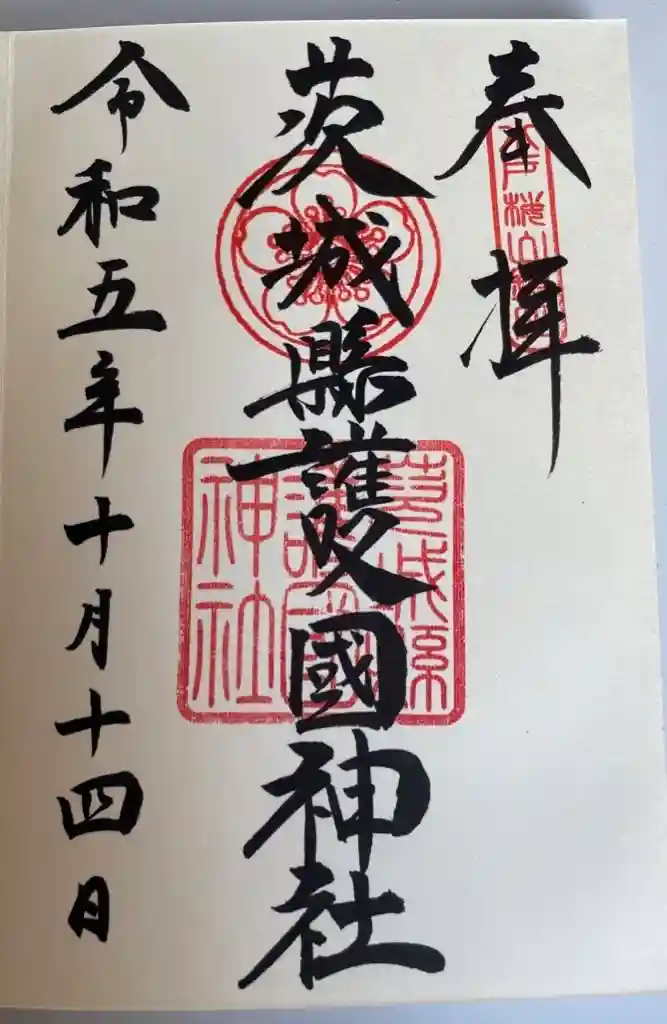 奉拝
水戸桜山
茨城縣護國神社
茨城県
護国
神社
令和五年十月十四日